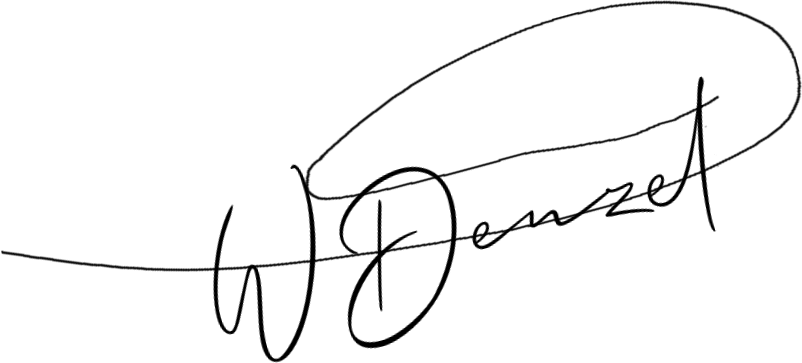 W Denzel